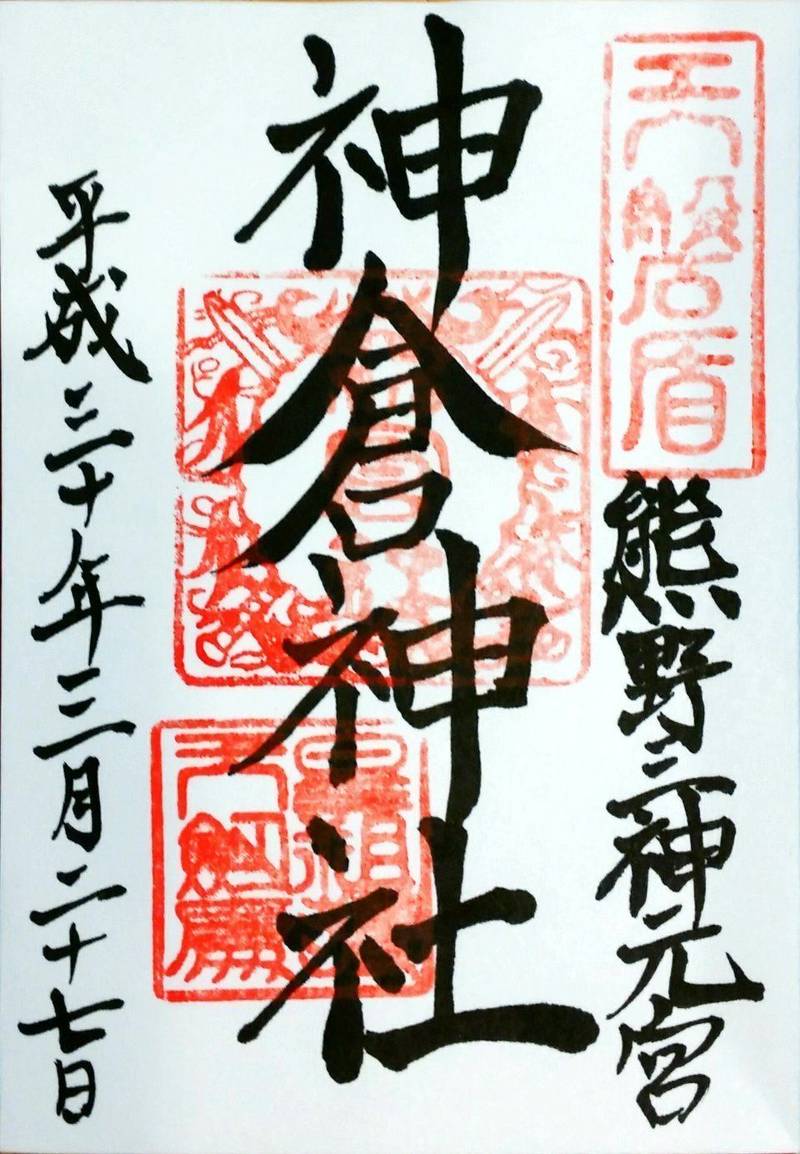 天磐盾
熊野三神元宮
神倉神社
平成三十年三月二十七日